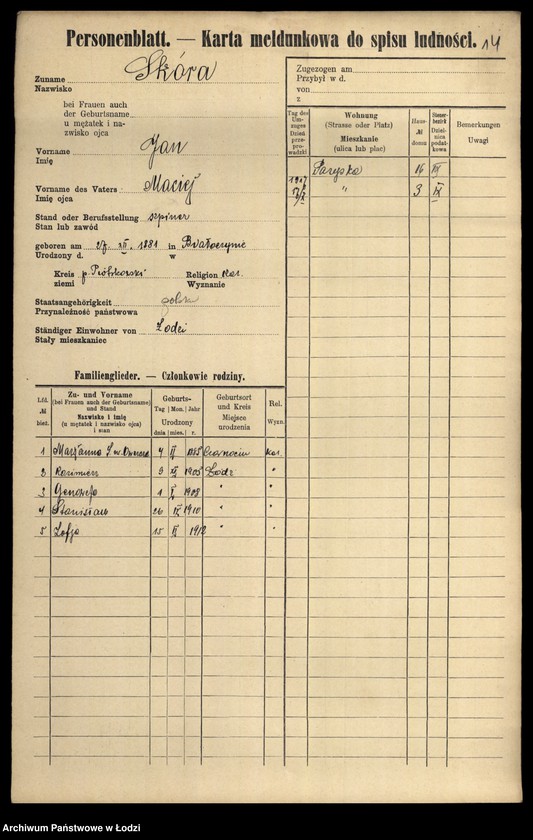 Personenblatt. — Karta meldunkowa do spisu ludności. 14
Zuname Skóra
Nazwisko
bei Frauen auch
der Geburtsname
u mężatek i na-
zwisko ojca
Vorname Jan
Imię
Vorname des Vaters : Maciej
Imię ojca
Stand oder Berufsstellung
Stan lub zawód
geboren am XII. 1881 in
Urodzony d. w
Kreis p. Piotrkowski Religion kat.
ziemi Wyznanie
Staatsangehörigkeit polska
Przynależność państwowa
Ständiger Einwohner von Łodzi
Stały mieszkaniec
Zugezogen am
Przybył w d.
von
z
Tag des Um-
zuges
Dzień
prze-
prowadzki
Wohnung
(Strasse oder Platz)
Mieszkanie
(ulica lub plac)
Haus-
№
domu
Steuer-
bezirk
Dziel-
nica
podat-
kowa
Bemerkungen
Uwagi
16 IX
1917 " 3 IX
Familienglieder. — Członkowie rodziny.
Lfd.
№
bież.
Zu- und Vorname
(bei Frauen auch der Geburtsname)
und Stand
Nazwisko i imię
(u mężatek i nazwisko ojca)
i stan
Geburts-
Tag Mon. Jahr
Urodzony
dnia mies. r.
Geburtsort
und Kreis
Miejsce
urodzenia
Rel.
Wyzn.
1 Maryanna S. 4 II 1885 Czarnocin kat.
2 Kazimierz 9 1905 Łódź "
3 Genowefa 1 X 1908 " "
4 Stanisław 26 IX 1910 " "
5 Zofja 15 1912 " "
Archiwum Państwowe w Łodzi